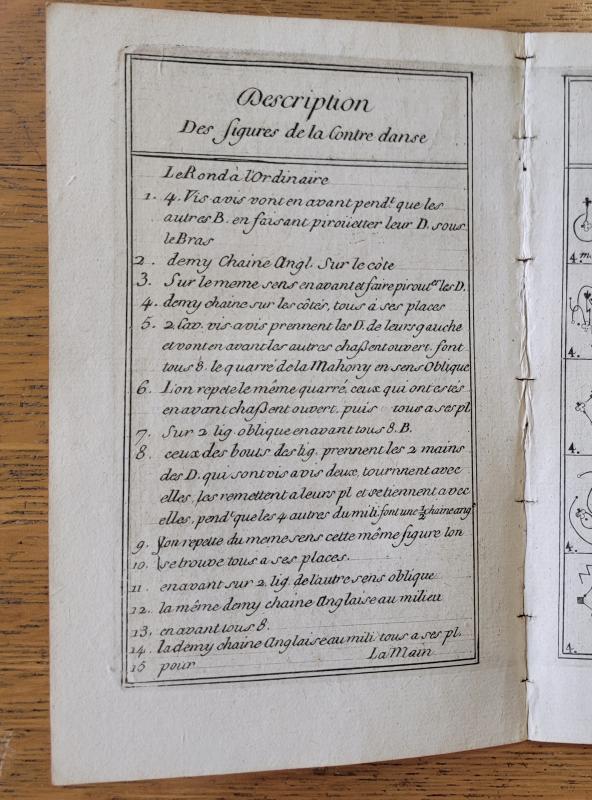 Description
Des figures de la Contre danse
Le Rond à l'Ordinaire
1. 4. Vis a vis vont en avant pend.t que les
autres B. en faisant piroüetter leur D. sous
le Bras
2. demy Chaine Angl. Sur le côte
3. Sur le meme sens en avant et faire pirouet.er les D.
4. demy chaine sur les côtés, tous à ses places
5. 2 Cav. vis a vis prennent les D. de leurs gauche
et vont en avant les autres chaßent ouvert. font
tous 8. le quarré de la Mahony en sens Oblique
6. L'on repete le même quarré. ceux qui ont etés
en avant chaßent ouvert, puis tous a ses pl
7. Sur 2 lig. oblique en avant tous 8. B.
8. ceux des bouts des lig. prennent les 2 mains
des D. qui sont vis a vis deux, tournnent avec
elles, les remettent a leurs pl. et se tiennent avec
elles, pend.t que les 4 autres du mili font une ½ chaine ang
9. l'on repette du meme sens cette même figure lon
10. se trouve tous a ses places.
11. en avant sur 2. lig. de l'autre sens oblique
12. la même demy chaine Anglaise au milieu
13. en avant tous 8.
14. la demy chaine Anglaise au mili tous a ses pl.
15 pour La Main
4.m
4.
4.
4.
4.